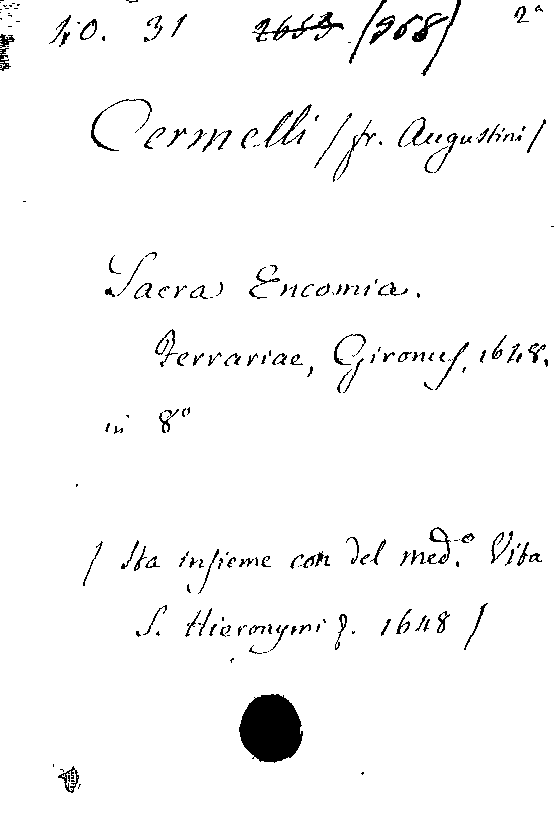 40. 31 2653 (368) 2ª
Cermelli / fr. Augustini /
Sacra Encomia.
Ferrariae, Gironus, 1648.
in 8º
/ Sta insieme con del med.º Vita
S. Hieronymi &. 1648 /